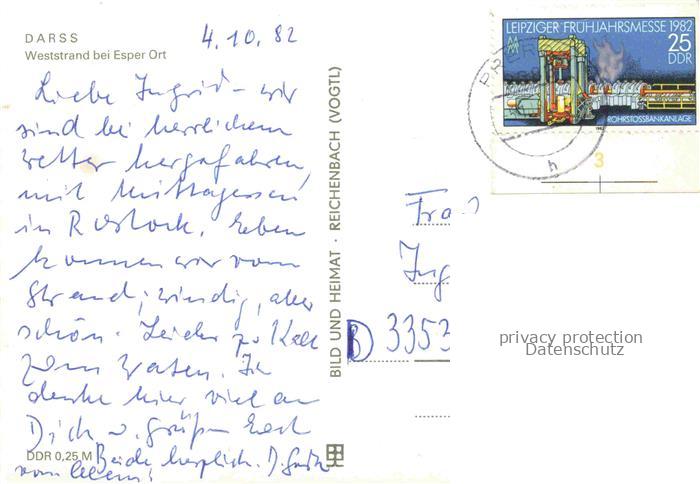 DARSS
Weststrand bei Esper Ort
4.10.82
Liebe Ingrid – wir
sind bei herrlichem
Wetter hergefahren,
mit Mittagessen
in Rostock. Eben
kommen wir vom
Strand; windig, aber
schön. Leider zu kalt
zum Waten. Ich
denke hier viel an
Dich u. grüße Euch
Beide herzlich. D.
von
DDR 0,25 M
BILD UND HEIMAT · REICHENBACH (VOGTL)
LEIPZIGER FRÜHJAHRSMESSE 1982
25
DDR
ROHRSTOSSBANKANLAGE
h
3
Frau
Ing
3353
privacy protection
Datenschutz